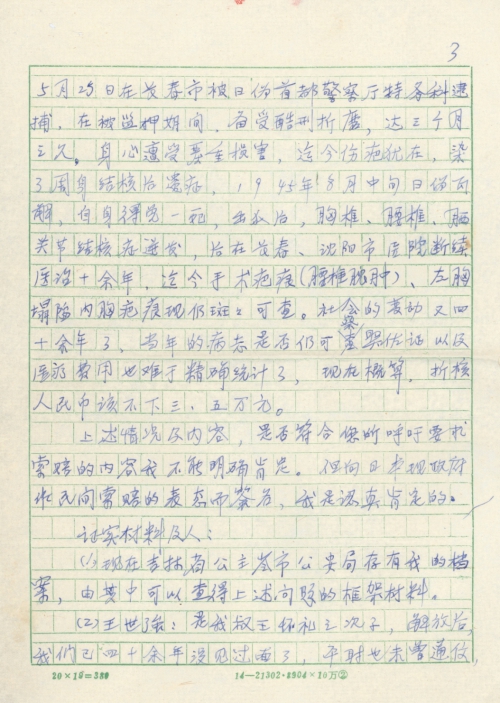 3
5月25日在长春市被日伪首都警察厅特务科逮
捕，在被监押期间，备受酷刑折磨，达三个月
之久。身心遭受严重损害，迄今伤疤犹在，染
了周身结核后遗症，1945年8月中旬日伪瓦
解，自身得免一死，出狱后，胸椎、腰椎、
关节结核症迸发，后在长春、沈阳市医院断续
医治十余年，迄今手术疤痕（腰椎脓肿）、左胸
塌陷内胸疤痕现仍斑々可查。社会的变动又四
十余年了，当年的病志是否仍可查案举佐证以及
医药费用也难于精确统计了，现在概算，折核
人民币该不下三、五万元。
上述情况及内容，是否符合您所呼吁要求
索赔的内容我不能明确肯定。但向日本现政府
作民间索赔的表态而签名，我是认真肯定的。
证实材料及人：
(1)现在吉林省公主岭市公安局存有我的档
案，由其中可以查得上述问题的框架材料。
(2)王世强：是我叔王怀礼之次子，解放后，
我们已四十余年没见过面了，平时也未曾通信，
20×19=380
14—21302·8904×10万②